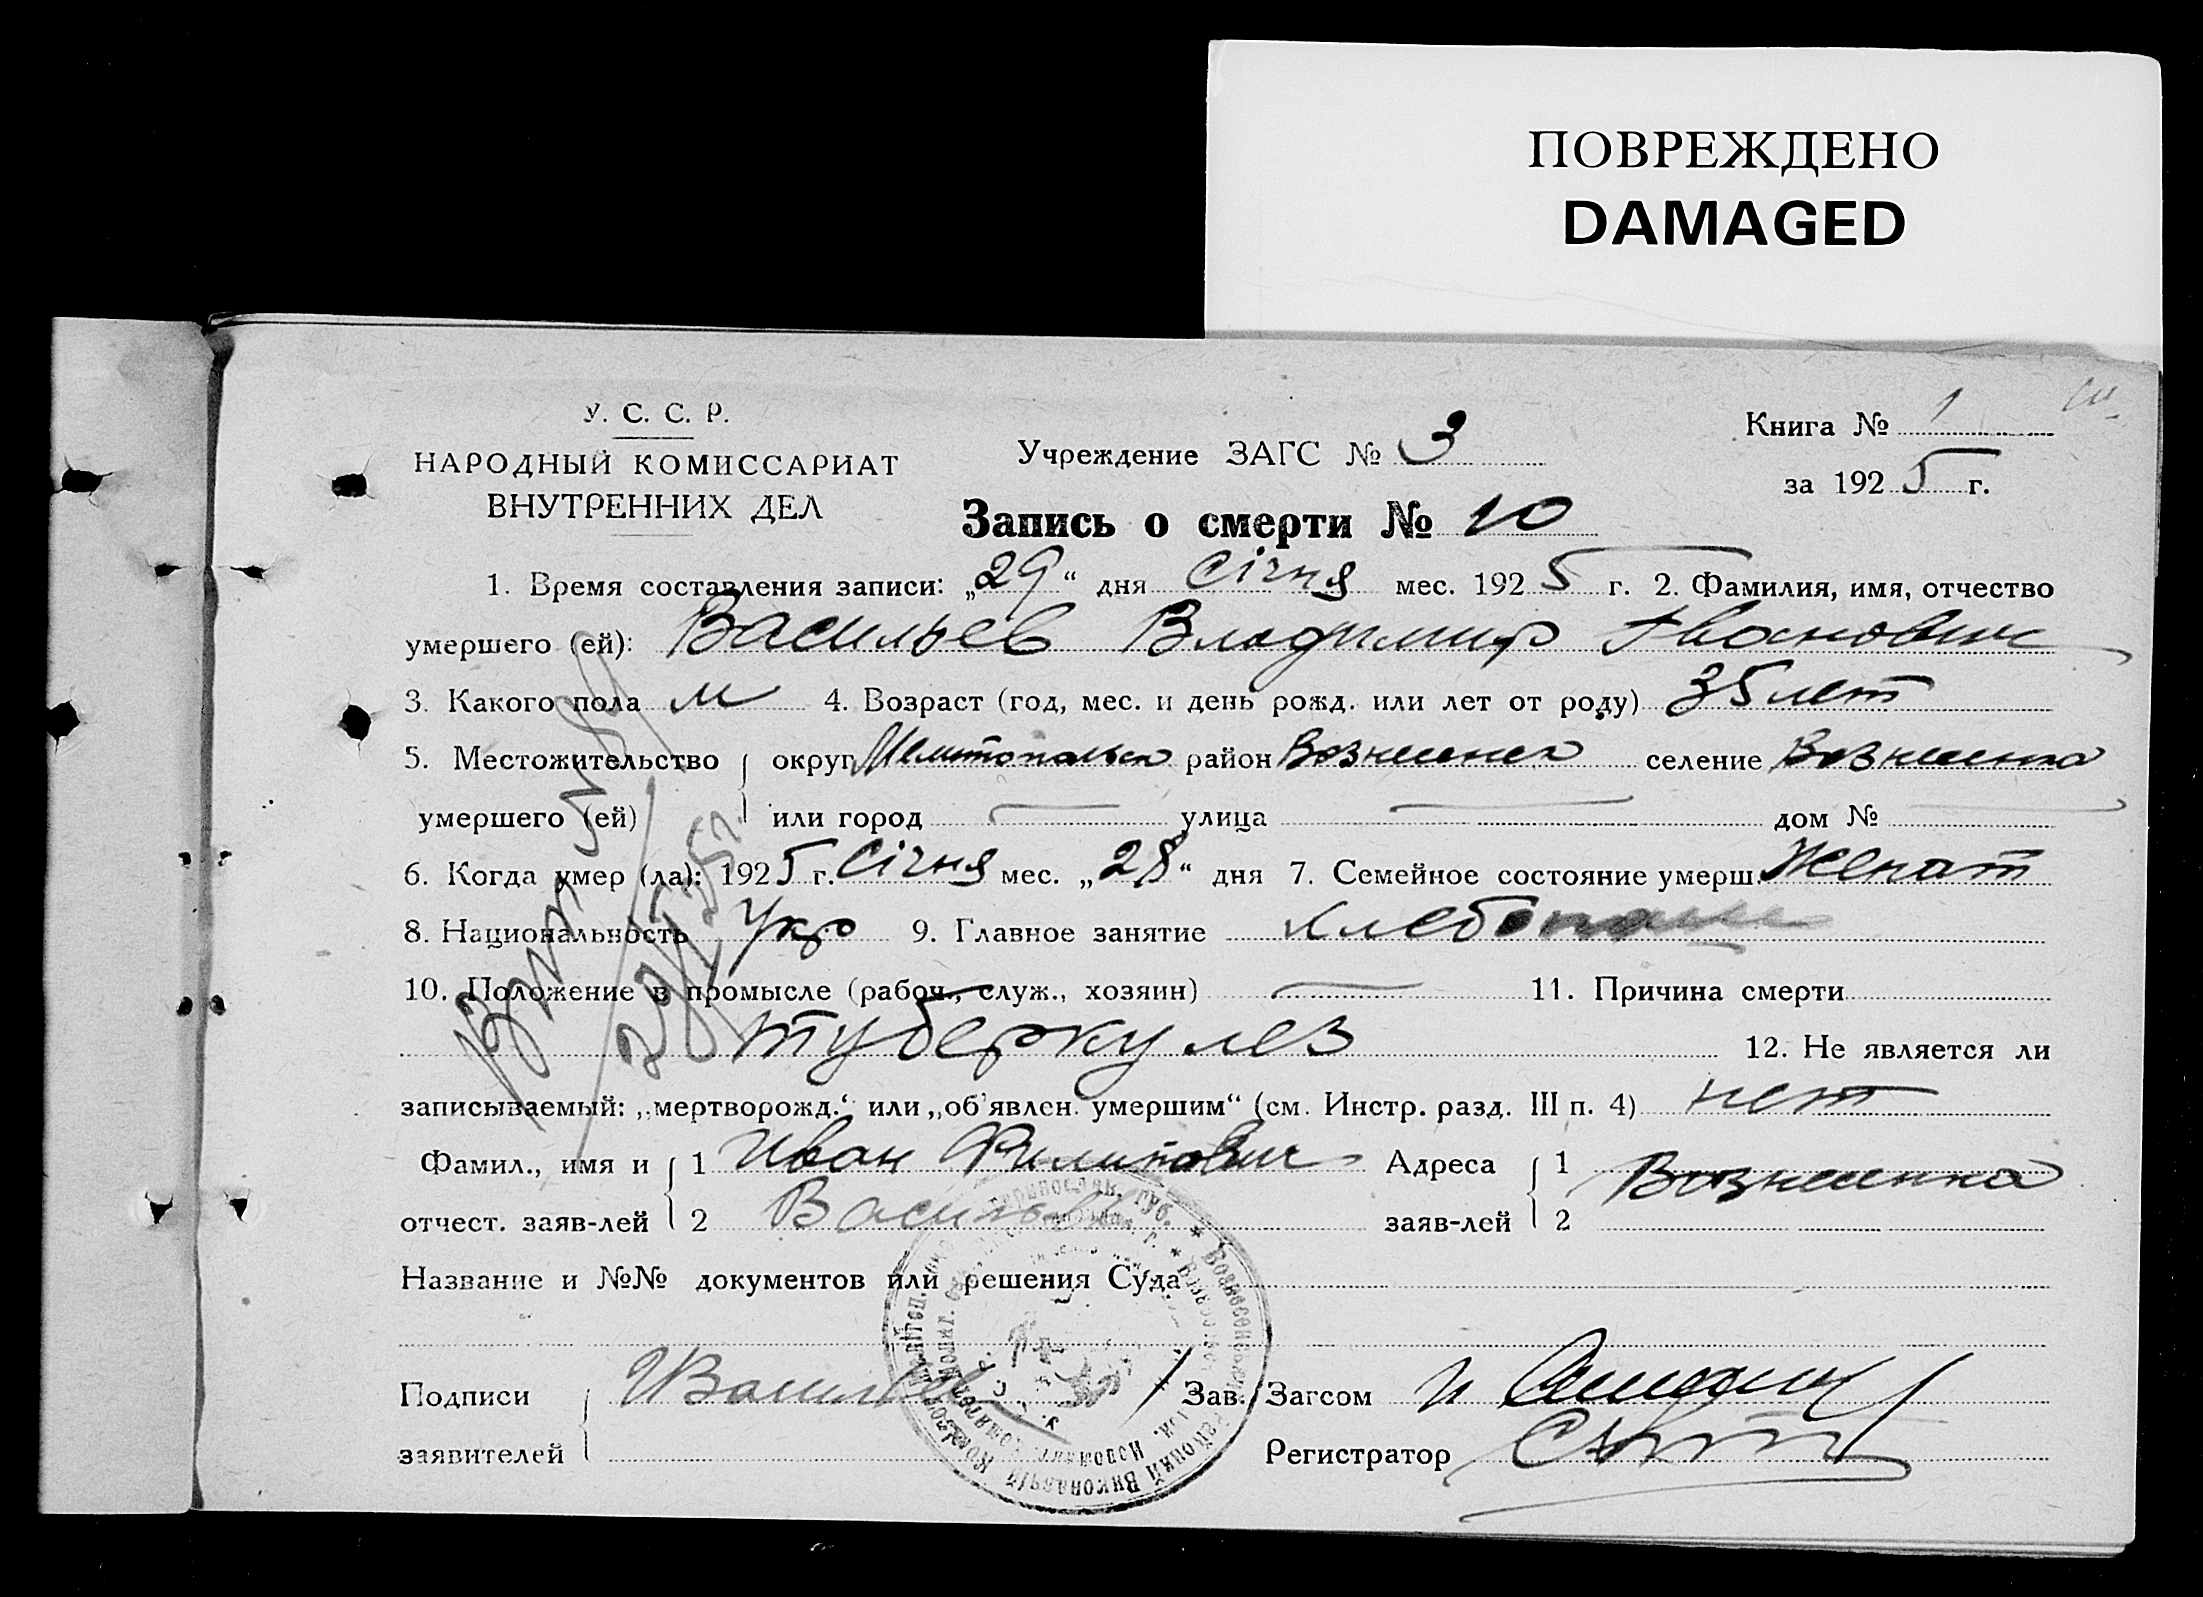 ПОВРЕЖДЕНО
DAMAGED
У. С. С. Р.
НАРОДНЫЙ КОМИССАРИАТ
ВНУТРЕННИХ ДЕЛ
Учреждение ЗАГС № 3
Книга № 1
за 1925 г.
Запись о смерти № 10
1. Время составления записи: „29“ дня Січня мес. 1925 г. 2. Фамилия, имя, отчество
умершего (ей): Васильев Владимир Иванович
3. Какого пола м 4. Возраст (год, мес. и день рожд. или лет от роду) 35 лет
5. Местожительство округ Мелитопольск район Вознесенск селение Вознесенка
умершего (ей) или город — улица — дом № —
6. Когда умер (ла): 1925 г. Січня мес. „28“ дня 7. Семейное состояние умерш. Женат
8. Национальность Укр 9. Главное занятие хлебопаш
10. Положение в промысле (рабоч., служ., хозяин) — 11. Причина смерти
туберкулез 12. Не является ли
записываемый: „мертворожд.“ или „об'явлен. умершим“ (см. Инстр. разд. III п. 4) нет
Фамил., имя и 1 Иван Филипович Адреса 1 Вознесенка
отчест. заяв-лей 2 Васильев заяв-лей 2
Название и №№ документов или решения Суда
Подписи ИВасильев Зав. Загсом
заявителей Регистратор